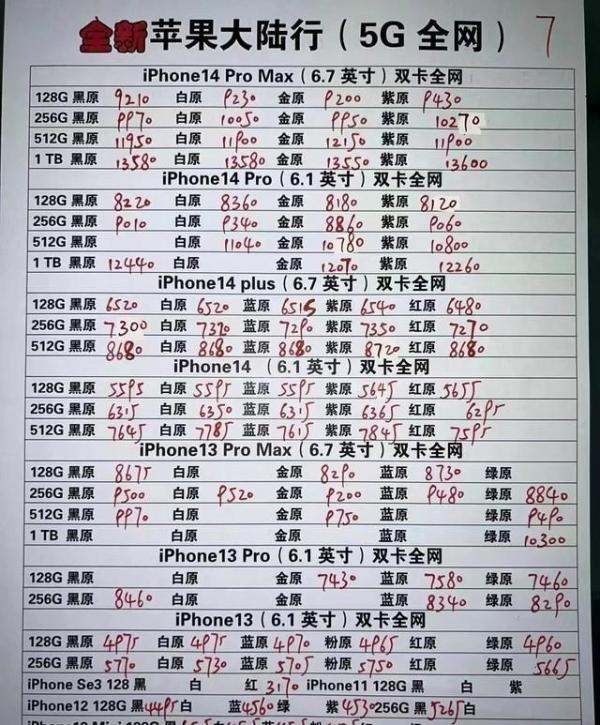 全新苹果大陆行（5G 全网） 7
iPhone14 Pro Max（6.7 英寸）双卡全网
128G 黑原 9210 白原 9230 金原 9200 紫原 9430
256G 黑原 9970 白原 10050 金原 9950 紫原 10270
512G 黑原 11950 白原 11900 金原 12150 紫原 11900
1 TB 黑原 13580 白原 13580 金原 13550 紫原 13600
iPhone14 Pro（6.1 英寸）双卡全网
128G 黑原 8220 白原 8360 金原 8180 紫原 8120
256G 黑原 9010 白原 9340 金原 8860 紫原 9060
512G 黑原 白原 11040 金原 10780 紫原 10800
1 TB 黑原 12440 白原 金原 12070 紫原 12260
iPhone14 plus（6.7 英寸）双卡全网
128G 黑原 6520 白原 6520 蓝原 6515 紫原 6540 红原 6480
256G 黑原 7300 白原 7320 蓝原 7290 紫原 7350 红原 7270
512G 黑原 8680 白原 8680 蓝原 8680 紫原 8720 红原 8680
iPhone14 （6.1 英寸）双卡全网
128G 黑原 5595 白原 5595 蓝原 5595 紫原 5645 红原 5655
256G 黑原 6315 白原 6350 蓝原 6315 紫原 6365 红原 6295
512G 黑原 7645 白原 7785 蓝原 7615 紫原 7845 红原 7595
iPhone13 Pro Max（6.7 英寸）双卡全网
128G 黑原 8675 白原 金原 8290 蓝原 8730 绿原
256G 黑原 9500 白原 9520 金原 9200 蓝原 9480 绿原 8840
512G 黑原 9970 白原 金原 9750 蓝原 绿原 9490
1 TB 黑原 白原 金原 蓝原 绿原 10300
iPhone13 Pro（6.1 英寸）双卡全网
128G 黑原 白原 金原 7430 蓝原 7580 绿原 7460
256G 黑原 8460 白原 金原 蓝原 8340 绿原 8290
iPhone13（6.1 英寸）双卡全网
128G 黑原 4975 白原 4975 蓝原 4970 粉原 4965 红原 绿原 4960
256G 黑原 5770 白原 5730 蓝原 5705 粉原 5750 红原 绿原 5665
iPhone Se3 128 黑 白 红 3170 iPhone11 128G 黑 白 紫
iPhone12 128G 黑 4495 白 蓝 4560 绿 紫 4530 256G 黑 5265 白